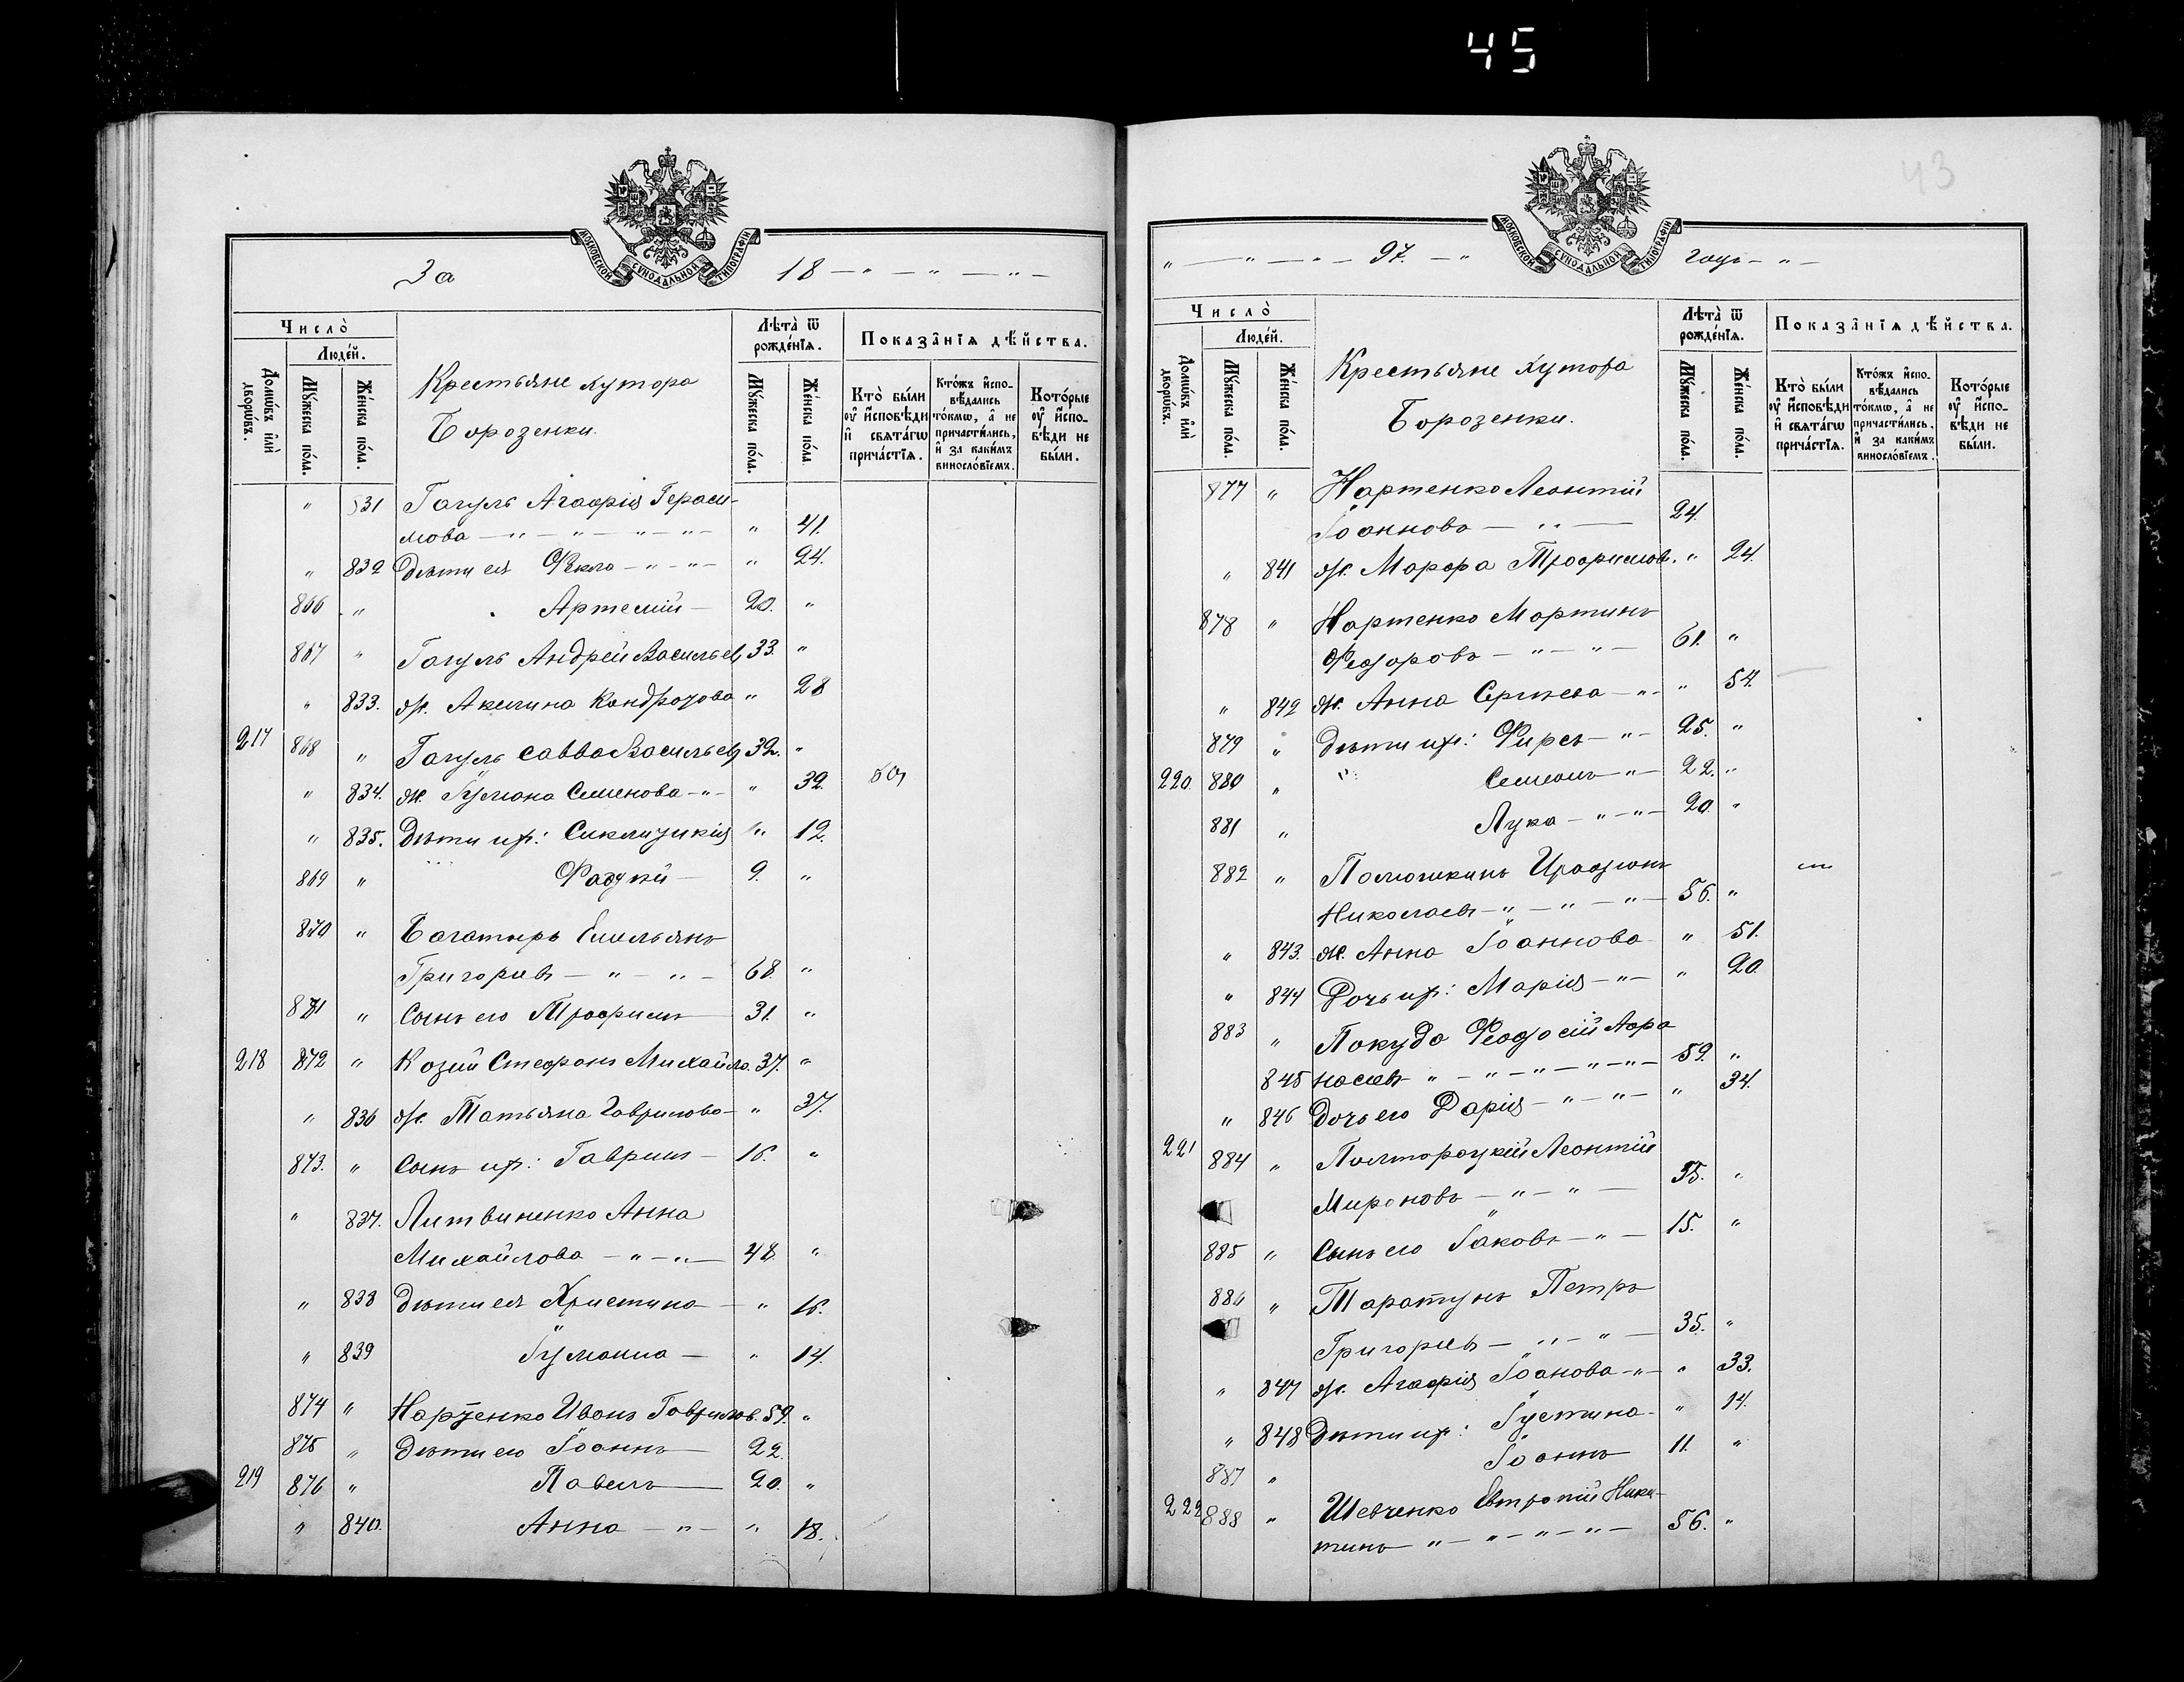 45
43
МОСКОВСКОЙ СѴНОДАЛЬНОЙ ТИПОГРАФІИ
За 18 — " — " — " —
Число̀
Людéй.
Домѡ́въ и҆лѝ дворѡ́въ.
Мꙋ́жеска по́ла.
Же́нска по́ла.
Крестьяне хутора
Борозенки.
Лѣта̀ ѿ рожде́нїѧ.
Мꙋ́жеска по́ла.
Же́нска по́ла.
Показа̑нїѧ дѣ́йства.
Кто̀ бы́ли ᲂу҆ и҆сповѣ́ди и҆ свѧта́гѡ прича́стїѧ.
Кто́жъ и҆спо- вѣ́дались то́кмѡ, а҆ не причасти́лись, и҆ за каки́мъ винослό́вїемъ.
Кото́рые ᲂу҆ и҆спо- вѣ́ди не бы́ли.
" 831 Гагуль Агафрія Гераси-
мова — " — " — " — " — " 41.
" 832 Дѣти ея Ѳекла — " — " — " 24.
866 " Артемій — 20. "
867 " Гагуль Андрей Васильев, 33. "
" 833. ж. Акилина Кондратова " 28
217 868 " Гагуль Савва Васильев, 32. "
" 834. ж. Іуліана Семенова — " — " 32.
" 835. Дѣти их: Сиклитикія " 12.
869 " Фаддей — 9. "
870 " Багатырь Емельянъ
Григорьевъ — " — " — 68. "
871 " Сынъ его Трофимъ 31. "
218 872 " Козий Стефанъ Михайло. 37. "
" 836 ж. Татьяна Гаврилова — " 37.
873. " Сынъ их: Гавріилъ — 16. "
" 837. Литвиненко Анна
Михайлова — " — " — 48. "
" 838 Дѣти ея Христина — " 16.
" 839 Іуліанна — " 14.
874 " Нартенко Иванъ Гаврилов. 59. "
875 " Дѣти его Іоаннъ 22.
219 876 " Павелъ 20. "
" 840. Анна — " — " 18.
" — " — " — 97. — " годъ — " —
Число̀
Людéй.
Домѡ́въ и҆лѝ дворѡ́въ.
Мꙋ́жеска по́ла.
Же́нска по́ла.
Крестьяне хутора
Борозенки.
Лѣта̀ ѿ рожде́нїѧ.
Мꙋ́жеска по́ла.
Же́нска по́ла.
Показа̑нїѧ дѣ́йства.
Кто̀ бы́ли ᲂу҆ и҆сповѣ́ди и҆ свѧта́гѡ прича́стїѧ.
Кто́жъ и҆спо- вѣ́дались то́кмѡ, а҆ не причасти́лись, и҆ за каки́мъ винослό́вїемъ.
Кото́рые ᲂу҆ и҆спо- вѣ́ди не бы́ли.
877 " Нартенко Леонтій
Іоанновъ — " — 24.
" 841 ж. Марфа Трофимов. " 24.
878 " Нартенко Мартинъ
Ѳедоровъ — " — " — 61. "
" 842 ж. Анна Сергѣева — " — " 54.
879 " Дѣти их: Фирсъ — " — 25. "
220. 880 " Симеонъ — " — 22. "
881 " Лука — " — " — 20. "
882 " Полюшкинъ Иродіонъ
Николаевъ — " — " — " — 56. "
" 843. ж. Анна Іоаннова " 51.
" 844 Дочь их: Марія — " — " 20.
883 " Покуда Ѳеодосій Афа
845 насіевъ " — " — " — " — " — 59. "
" 846 Дочь его Дарія — " — " — " 34.
221 884 " Полторацкій Леонтій
Мироновъ — " — " — 35. "
885 " Сынъ его Іаковъ — " — 15. "
886 " Таратунъ Петръ
Григорьевъ — " — " — 35. "
" 847 ж. Агафрія Іоанова — " — " 33.
" 848 Дѣти их: Іустина — " 14.
887 " Іоаннъ 11. "
222 888 " Шевченко Евтропій Ники-
тинъ — " — " — " — " — 56. "